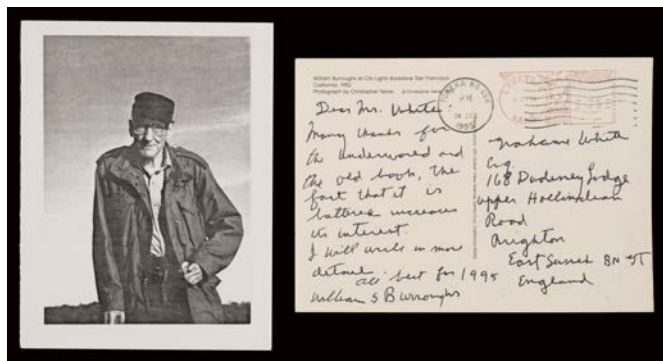 William Burroughs at City Lights Bookstore, San Francisco
California, 1982
Photograph by Christopher
Dear Mr. White
Many thanks for
the Underworld and
the old book, the
fact that it is
battered increases
its interest.
I will write in more
detail
all best for 1995
William S Burroughs
TOPEKA KS
PM
1995
Grahame White
Esq.
168 Dudeney Lodge
upper Hollingdean
Road
Brighton
East Sussex BN
England